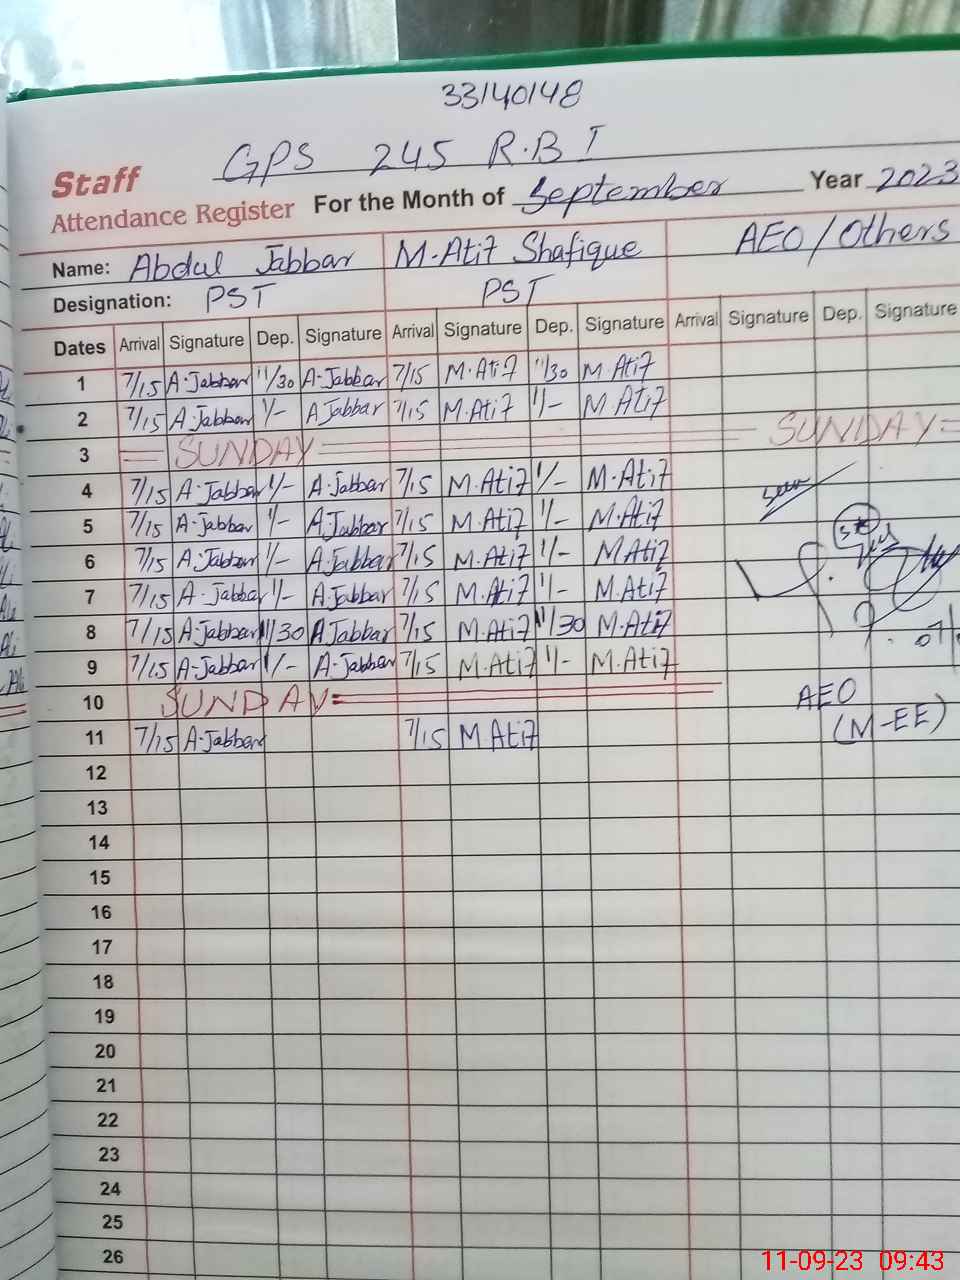 33140148
GPS 245 R.B I
Staff
Attendance Register For the Month of September Year 2023
Name: Abdul Jabbar M. Atif Shafique AEO / Others
Designation: PST PST
Dates Arrival Signature Dep. Signature Arrival Signature Dep. Signature Arrival Signature Dep. Signature
1 7/15 A.Jabbar 11/30 A.Jabbar 7/15 M.Atif 11/30 M.Atif
2 7/15 A.Jabbar 1/- A Jabbar 7/15 M.Atif 1/- M.Atif
3 SUNDAY SUNDAY
4 7/15 A.Jabbar 1/- A.Jabbar 7/15 M.Atif 1/- M.Atif
seen
5 7/15 A.Jabbar 1/- A.Jabbar 7/15 M.Atif 1/- M.Atif
6 7/15 A.Jabbar 1/- A.Jabbar 7/15 M.Atif 1/- M Atif
7 7/15 A.Jabbar 1/- A.Jabbar 7/15 M.Atif 1/- M.Atif
8 7/15 A.Jabbar 11/30 A.Jabbar 7/15 M.Atif 11/30 M.Atif
9 7/15 A.Jabbar 1/- A.Jabbar 7/15 M.Atif 1/- M.Atif
10 SUNDAY AEO
(M-EE)
11 7/15 A.Jabbar 7/15 M Atif
12
13
14
15
16
17
18
19
20
21
22
23
24
25
26
11-09-23 09:43